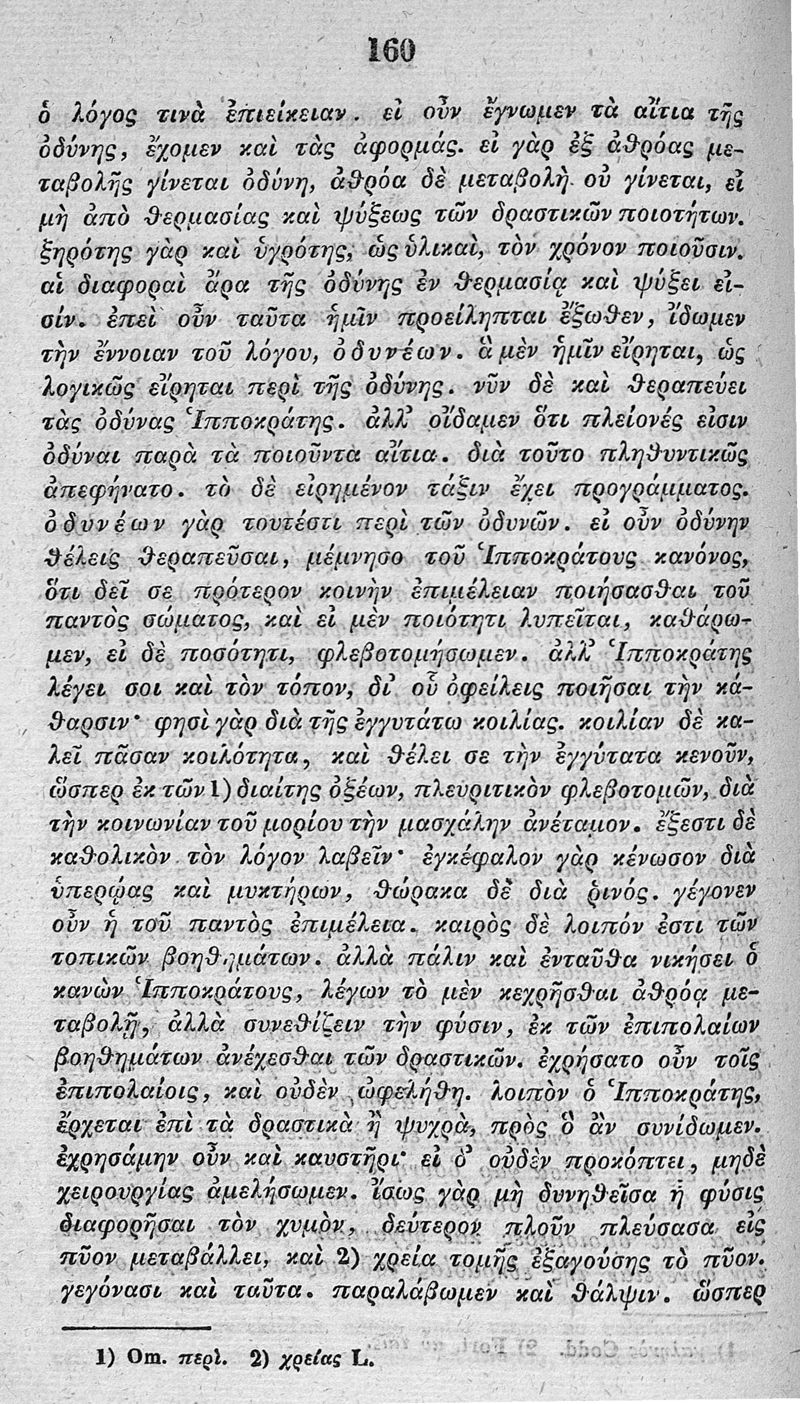 160
ὁ λόγος τινὰ ἐπιείκειαν. εἰ οὖν ἔγνωμεν τὰ αἴτια τῆς
ὀδύνης, ἔχομεν καὶ τὰς ἀφορμάς. εἰ γὰρ ἐξ ἀθρόας με-
ταβολῆς γίνεται ὀδύνη, ἀθρόα δὲ μεταβολὴ οὐ γίνεται, εἰ
μὴ ἀπὸ θερμασίας καὶ ψύξεως τῶν δραστικῶν ποιοτήτων.
ξηρότης γὰρ καὶ ὑγρότης, ὡς ὑλικαὶ, τὸν χρόνον ποιοῦσιν.
αἱ διαφοραὶ ἄρα τῆς ὀδύνης ἐν θερμασίᾳ καὶ ψύξει εἰ-
σίν. ἐπεὶ οὖν ταῦτα ἡμῖν προείληπται ἔξωθεν, ἴδωμεν
τὴν ἔννοιαν τοῦ λόγου, ὀδυνέων. ἃ μὲν ἡμῖν εἴρηται, ὡς
λογικῶς εἴρηται περὶ τῆς ὀδύνης. νῦν δὲ καὶ θεραπεύει
τὰς ὀδύνας Ἱπποκράτης. ἀλλ᾽ οἴδαμεν ὅτι πλείονές εἰσιν
ὀδύναι παρὰ τὰ ποιοῦντα αἴτια. διὰ τοῦτο πληθυντικῶς
ἀπεφήνατο. τὸ δὲ εἰρημένον τάξιν ἔχει προγράμματος.
ὀδυνέων γὰρ τουτέστι περὶ τῶν ὀδυνῶν. εἰ οὖν ὀδύνην
θέλεις θεραπεῦσαι, μέμνησο τοῦ Ἱπποκράτους κανόνος,
ὅτι δεῖ σε πρότερον κοινὴν ἐπιμέλειαν ποιήσασθαι τοῦ
παντὸς σώματος, καὶ εἰ μὲν ποιότητι λυπεῖται, καθάρω-
μεν, εἰ δὲ ποσότητι, φλεβοτομήσωμεν. ἀλλ᾽ Ἱπποκράτης
λέγει σοι καὶ τὸν τόπον, δι᾽ οὗ ὀφείλεις ποιῆσαι τὴν κά-
θαρσιν· φησὶ γὰρ διὰ τῆς ἐγγυτάτω κοιλίας. κοιλίαν δὲ κα-
λεῖ πᾶσαν κοιλότητα, καὶ θέλει σε τὴν ἐγγύτατα κενοῦν,
ὥσπερ ἐκ τῶν 1) διαίτης ὀξέων, πλευριτικὸν φλεβοτομῶν, διὰ
τὴν κοινωνίαν τοῦ μορίου τὴν μασχάλην ἀνέταμον. ἔξεστι δὲ
καθολικὸν τὸν λόγον λαβεῖν· ἐγκέφαλον γὰρ κένωσον διὰ
ὑπερῴας καὶ μυκτήρων, θώρακα δὲ διὰ ῥινός. γέγονεν
οὖν ἡ τοῦ παντὸς ἐπιμέλεια. καιρὸς δὲ λοιπόν ἐστι τῶν
τοπικῶν βοηθημάτων. ἀλλὰ πάλιν καὶ ἐνταῦθα νικήσει ὁ
κανὼν Ἱπποκράτους, λέγων τὸ μὲν κεχρῆσθαι ἀθρόᾳ με-
ταβολῇ, ἀλλὰ συνεθίζειν τὴν φύσιν, ἐκ τῶν ἐπιπολαίων
βοηθημάτων ἀνέχεσθαι τῶν δραστικῶν. ἐχρήσατο οὖν τοῖς
ἐπιπολαίοις, καὶ οὐδὲν ὠφελήθη. λοιπὸν ὁ Ἱπποκράτης,
ἔρχεται ἐπὶ τὰ δραστικὰ ἢ ψυχρὰ, πρὸς ὃ ἂν συνίδωμεν.
ἐχρησάμην οὖν καὶ καυστῆρι· εἰ δ᾽ οὐδὲν προκόπτει, μηδὲ
χειρουργίας ἀμελήσωμεν. ἴσως γὰρ μὴ δυνηθεῖσα ἡ φύσις
διαφορῆσαι τὸν χυμὸν, δεύτερον πλοῦν πλεύσασα εἰς
πῦον μεταβάλλει, καὶ 2) χρεία τομῆς ἐξαγούσης τὸ πῦον.
γεγόνασι καὶ ταῦτα. παραλάβωμεν καὶ θάλψιν. ὥσπερ
1) Om. περὶ. 2) χρείας L.